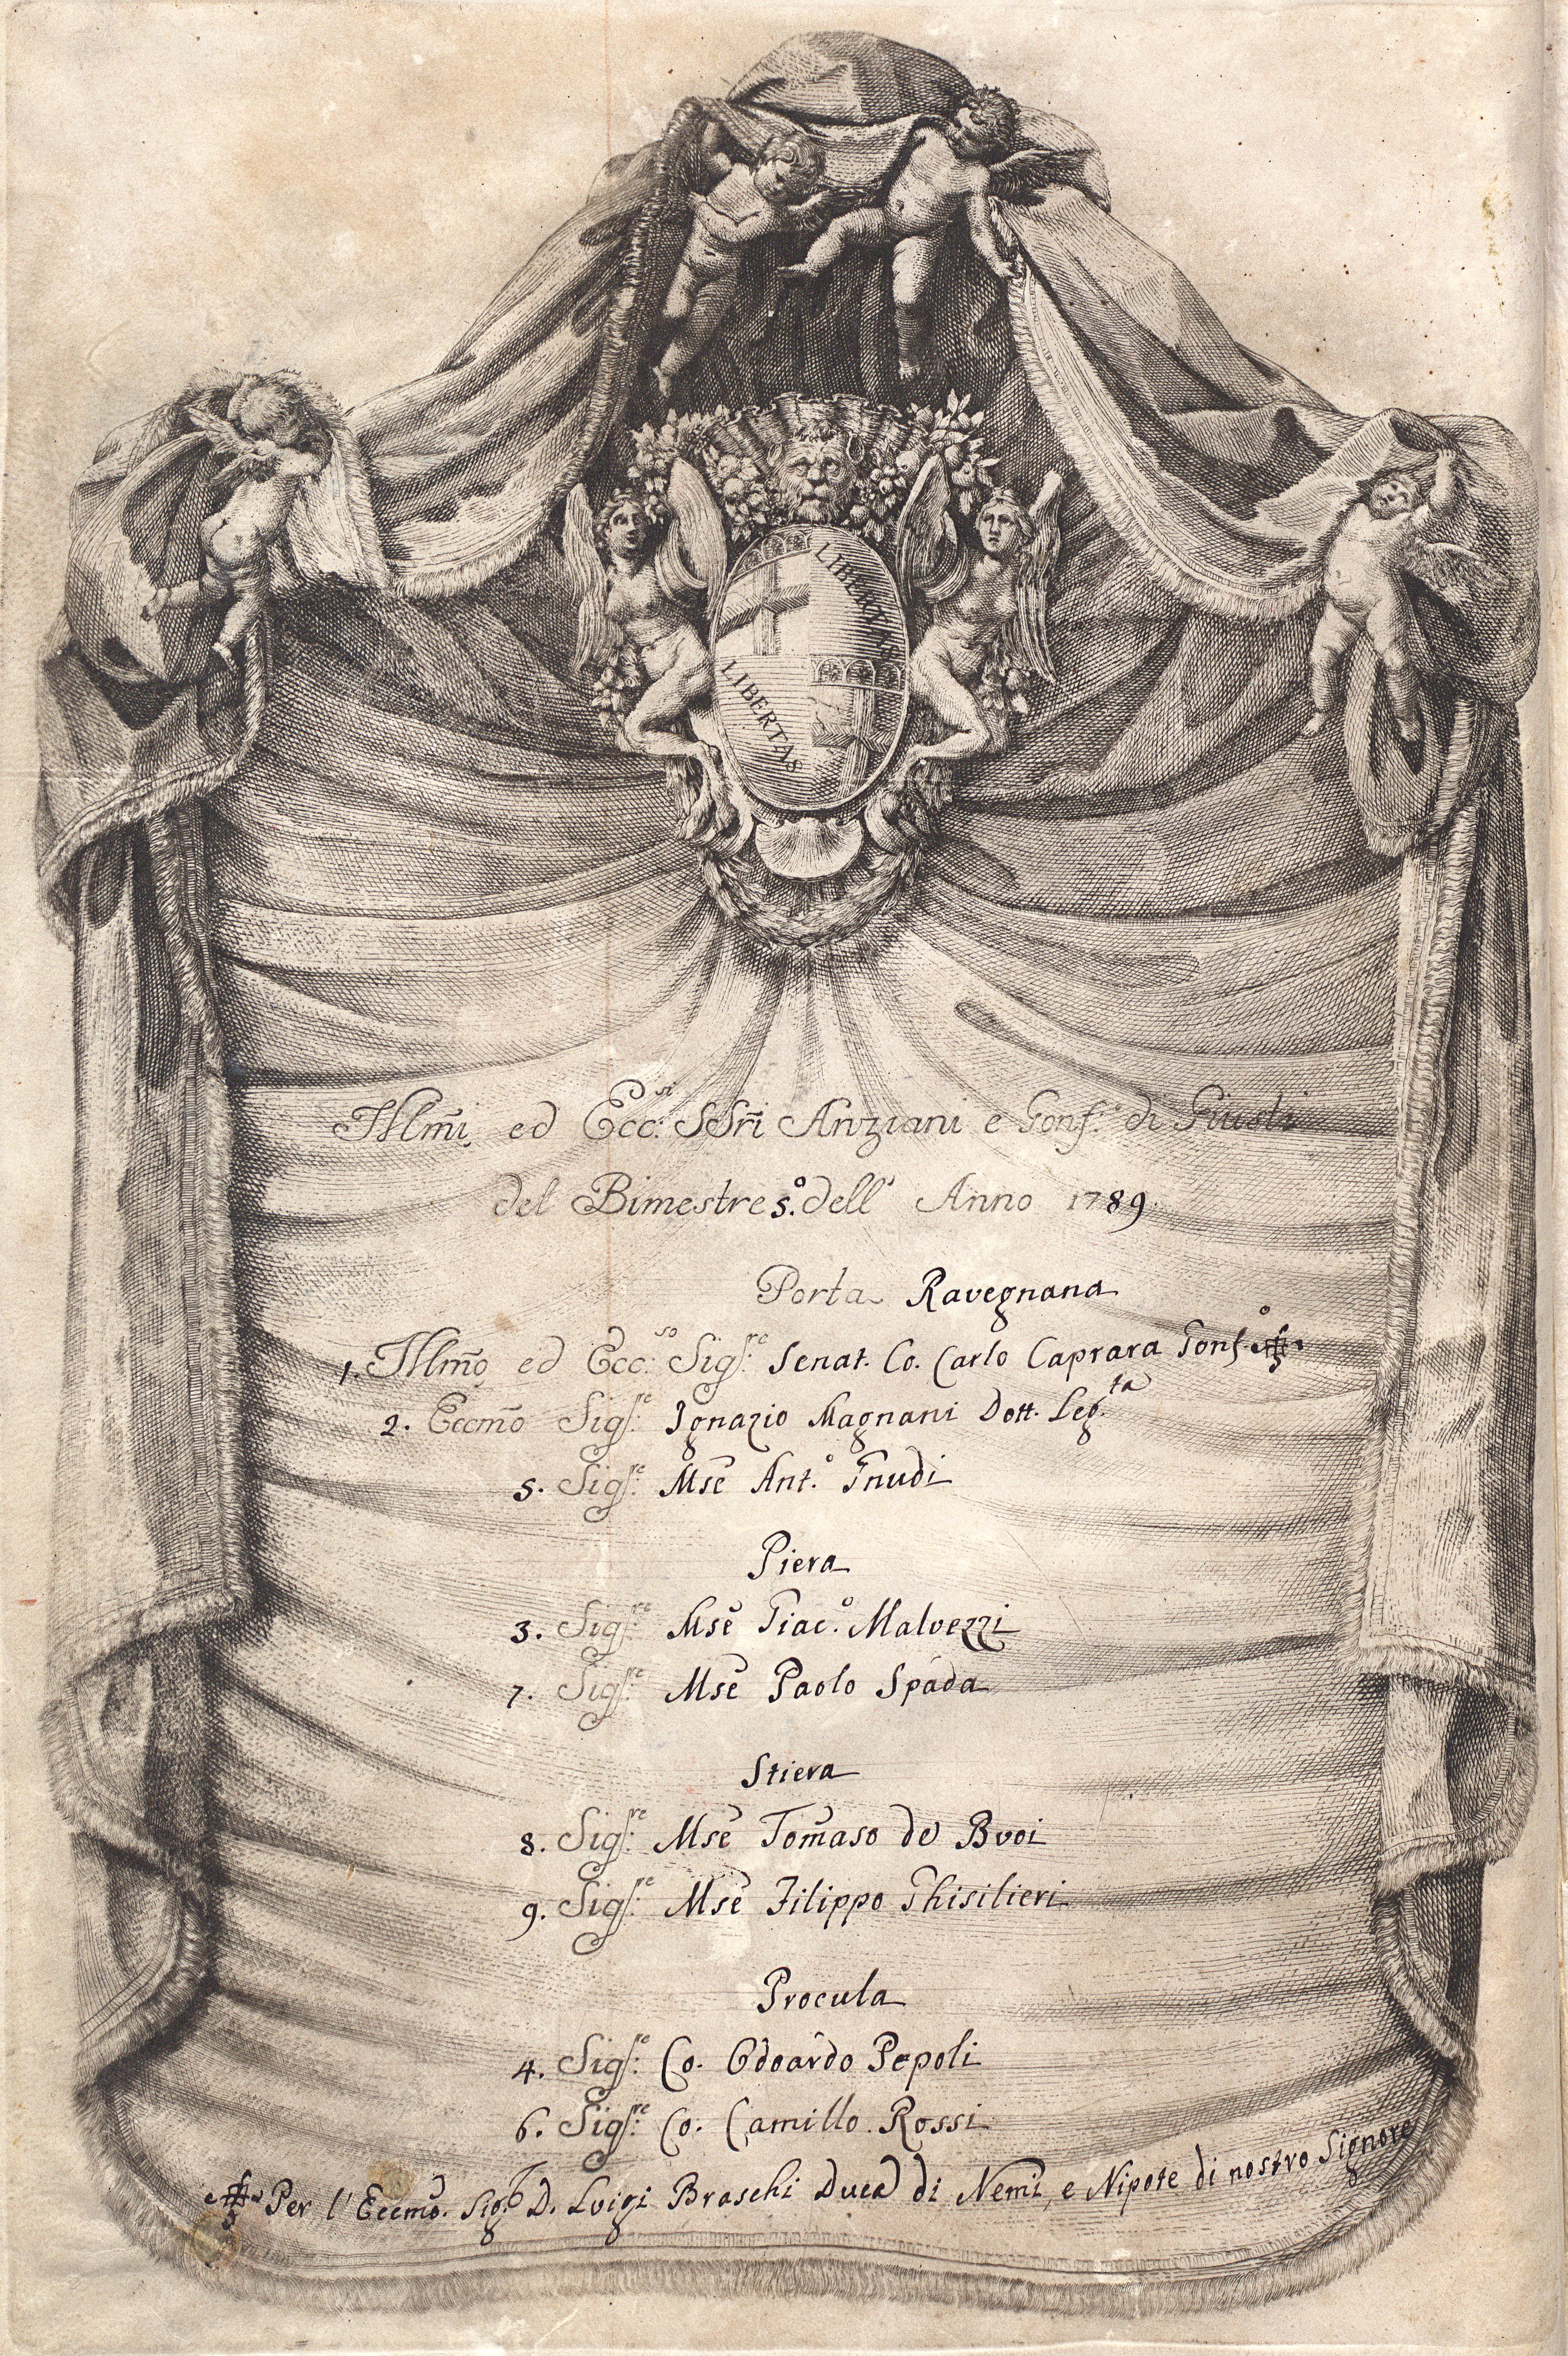 LIBERTAS
LIBERTAS
Illm̃i ed Ecc:si SSri Anziani e Gonf:e di Giusti
del Bimestre 5.o dell' Anno 1789.
Porta Ravegnana
1. Illm̃o ed Ecc:so Sig:re Senat. Co. Carlo Caprara Gonf.o
2. Eccm̃o Sig:re Ignazio Magnani Dott. Leg.ta
5. Sig:re Mse Ant.o Gnudi
Piera
3. Sig:re Mse Giac.o Malvezzi
7. Sig:re Mse Paolo Spada
Stiera
8. Sig:re Mse Tom̃aso de' Bvoi
9. Sig:re Mse Filippo Ghisilieri
Procula
4. Sig:re Co. Odoardo Pepoli
6. Sig:re Co. Camillo Rossi
Per l' Eccm̃o. Sig.r D. Lvigi Braschi Duca di Nemi, e Nipote di nostro Signore